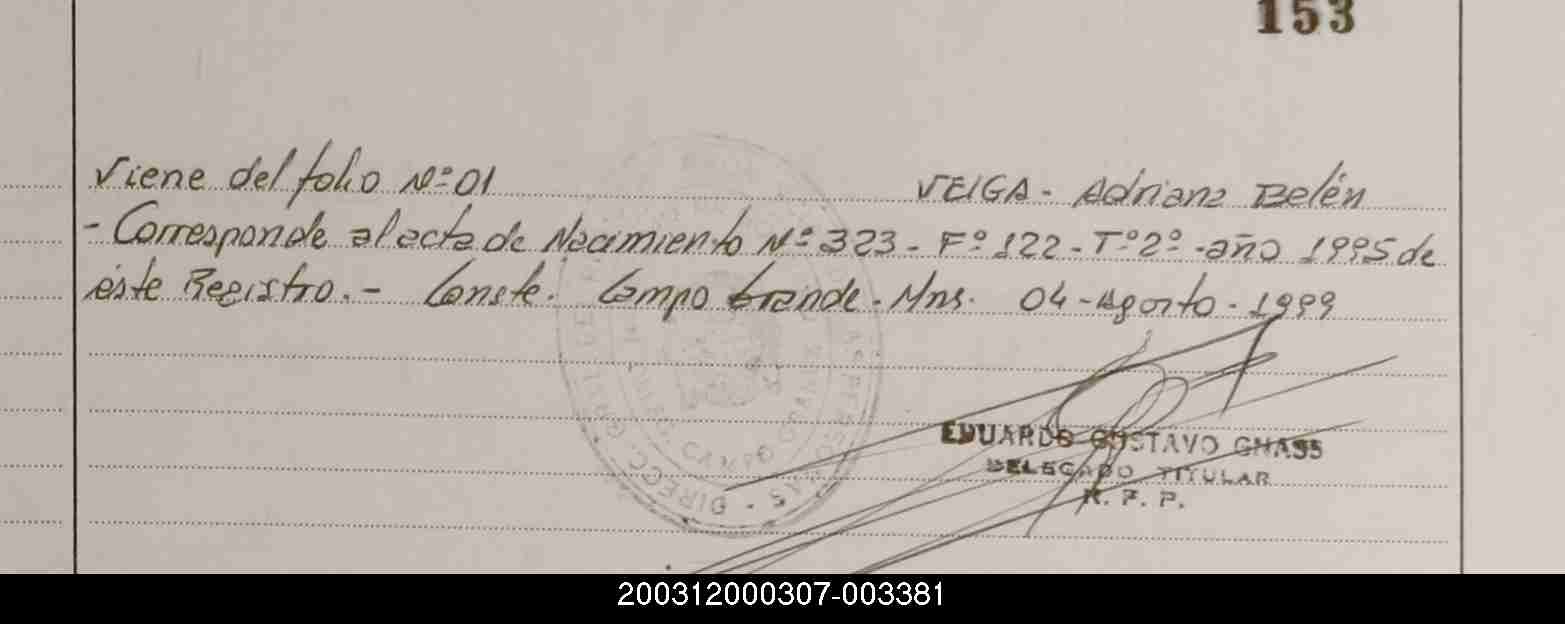 153
Viene del folio Nº 01 VEIGA - Adriana Belén
- Corresponde al acta de Nacimiento Nº 323 - Fº 122 - Tº 2º - año 1995 de
éste Registro. - Conste. Campo Grande - Mns. 04 - Agosto - 1999
EDUARDO GUSTAVO GNASS
DELEGADO TITULAR
R. P. P.
200312000307-003381